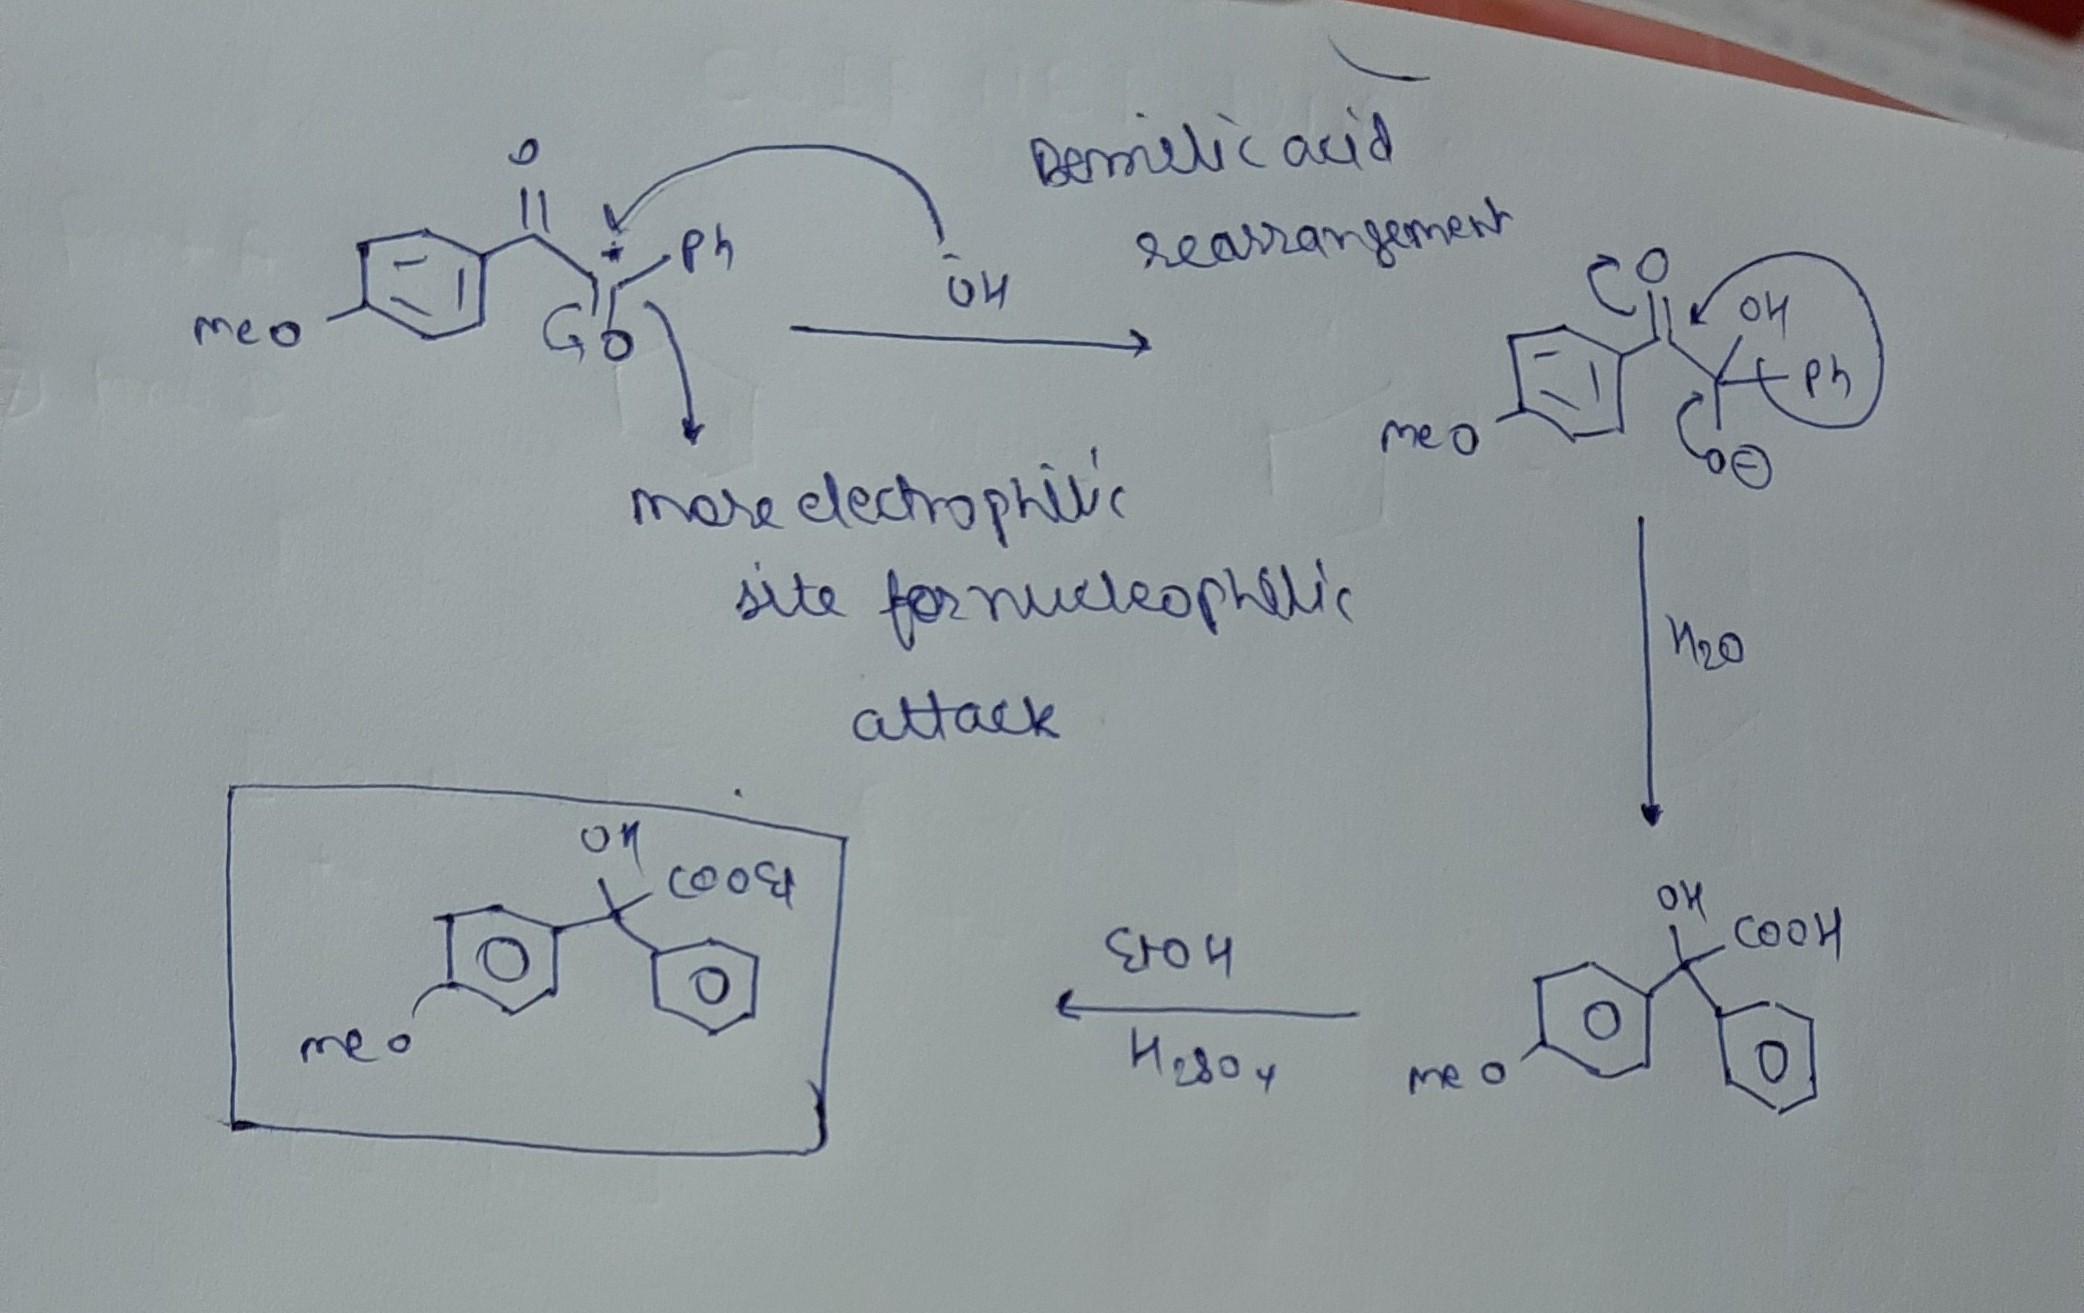 Benzilic acid
rearrangement
O
Ph
ÖH
meo
O
O
OH
Ph
meo
O⊖
more electrophilic
site for nucleophilic
attack
H2O
OH
COOEt
meo
EtOH
H2SO4
OH
COOH
meo